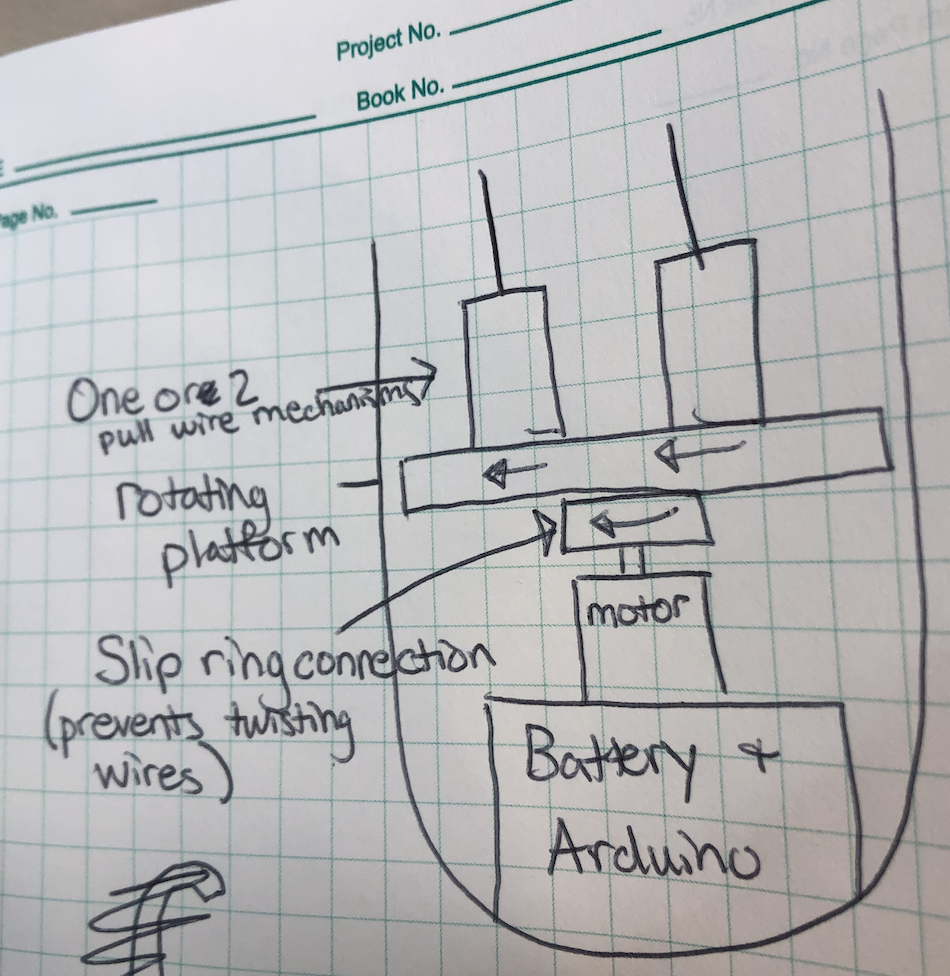 Project No.
Book No.
Page No.
One or 2
pull wire mechanisms
rotating
platform
motor
Slip ring connection
(prevents twisting
wires)
Battery +
Arduino